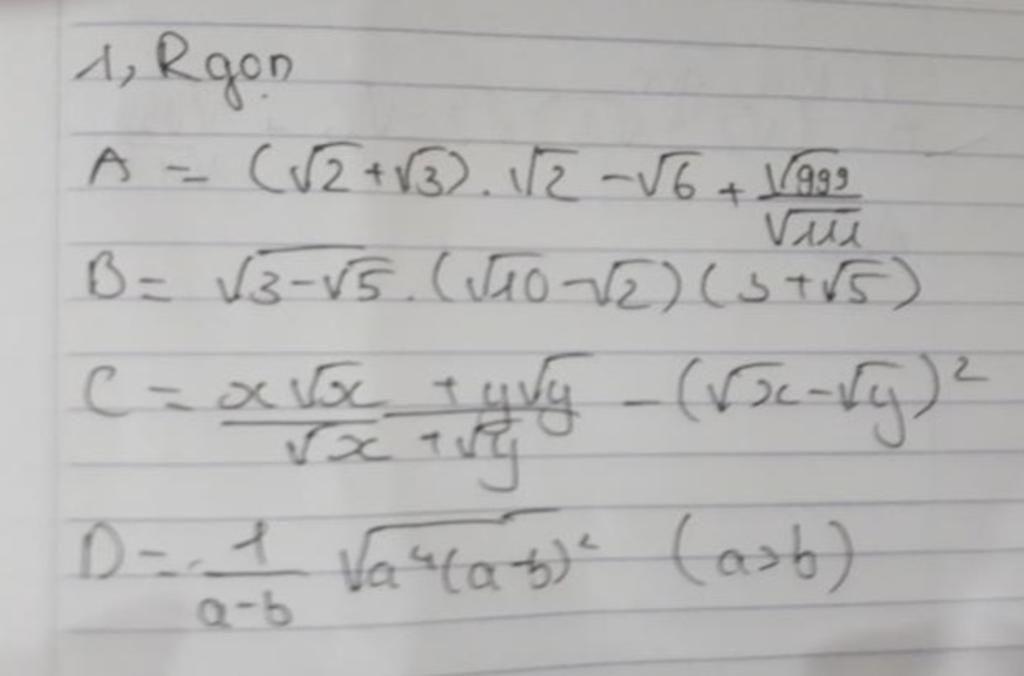 1, Rgọn
A = (√2 + √3) . √2 - √6 + √999 / √111
B = √(3 - √5) . (√10 - √2) (3 + √5)
C = (x√x + y√y) / (√x + √y) - (√x - √y)²
D = 1 / (a - b) √(a⁴(a - b)²) (a > b)